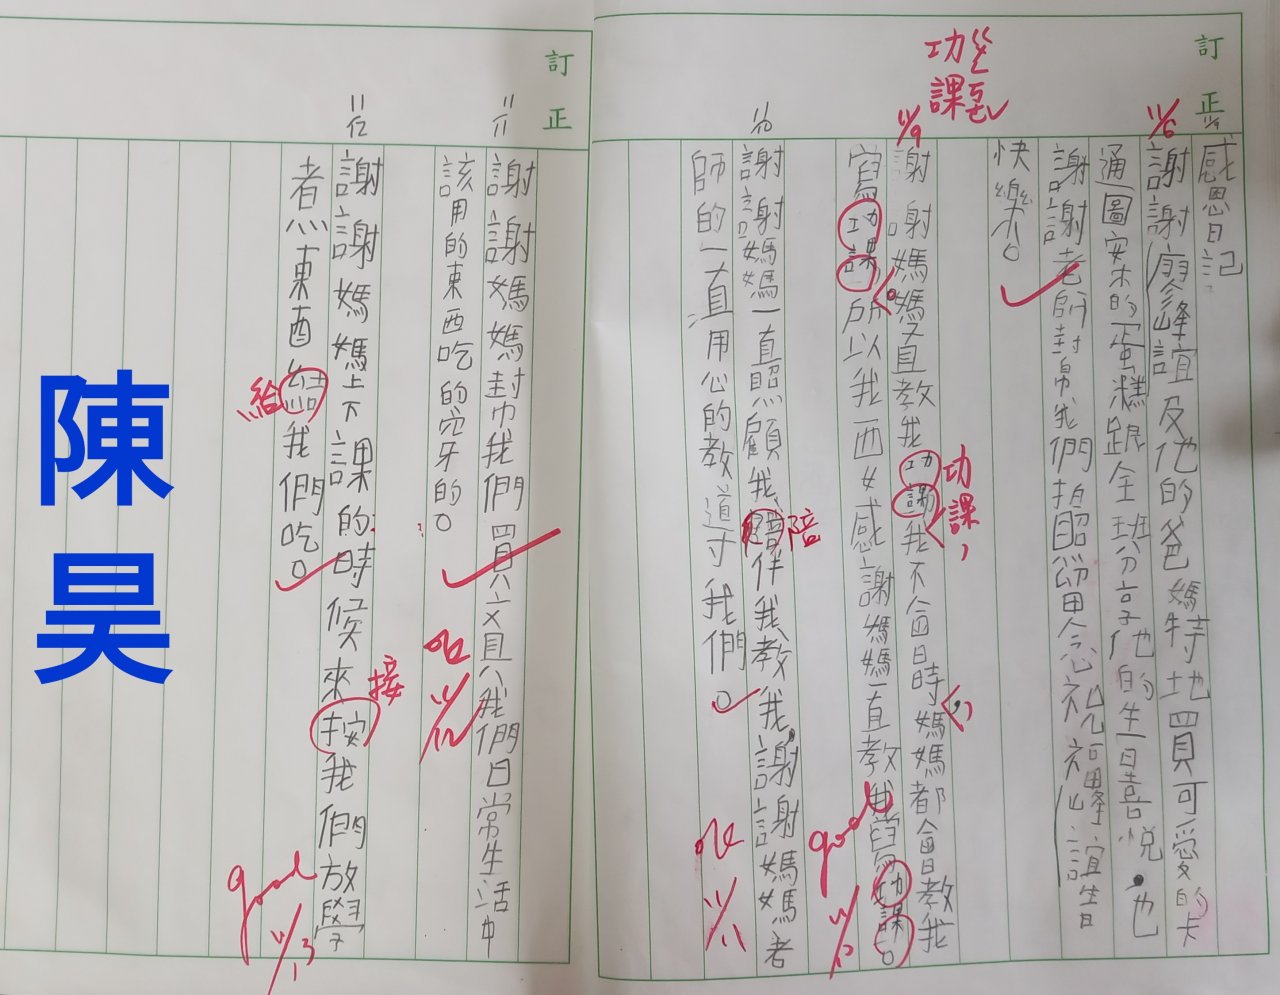 訂正
11/9
感恩日記
11/6
謝謝廖峰誼及他的爸媽特地買可愛的卡
通圖案的蛋糕跟全班分享他的生日喜悅,也
謝謝老師封帛我們拍照留念祝福峰誼生日
快樂。
功課
11/9
謝謝媽媽直教我功課我不會日時媽媽都會教我
功課,
寫功課所以我西女感謝媽媽一直教我寫功課。
good
11/10
11/10
謝謝媽媽一直照顧我陪伴我教我,謝謝媽媽老
陪
師的一直用心的教道寸我們。
ok
11/11
訂正
11/11
謝謝媽媽封巾我們買文具我們日常生活中
該用的東西吃的穿的。
ok
11/12
11/12
謝謝媽媽上下課的時候來按我們放學
接
煮東西結我們吃。
給
good
11/13
陳昊